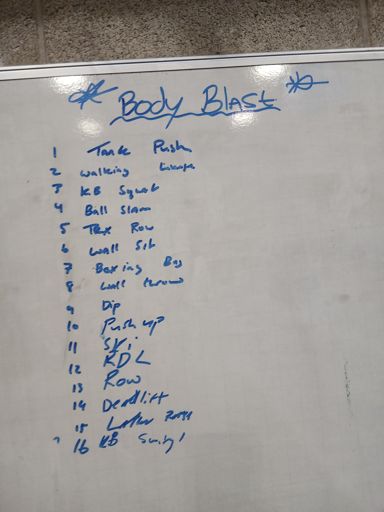 Body Blast
1 Tank Push
2 Walking
3 KB Squat
4 Ball Slam
5 TRX Row
6 Wall Sit
7 Boxing Bag
8 Wall throw
9 Dip
10 Push up
11 Ski
12 RDL
13 Row
14 Deadlift
15
16 KB Swing